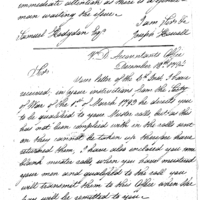 immediate attention as there is a
man waiting the
I am Sir &c
Samuel Hodgdon Esq. Joseph Howell
W. D. Accountants Office
December 19th 1792
Sir.
Your letter of the 6th Inst. I have
received, in your instructions from the Secy
of War of the 1st of March 1792 he directs you
to be qualified to your Muster rolls but as this
has not been complied with in the rolls sent
on they cannot be taken up therefore have
returned them, I have also inclosed you some
blank muster rolls, when you have mustered
your men and qualified to the roll you
will transmit them to this Office when the
pay will be remitted to you